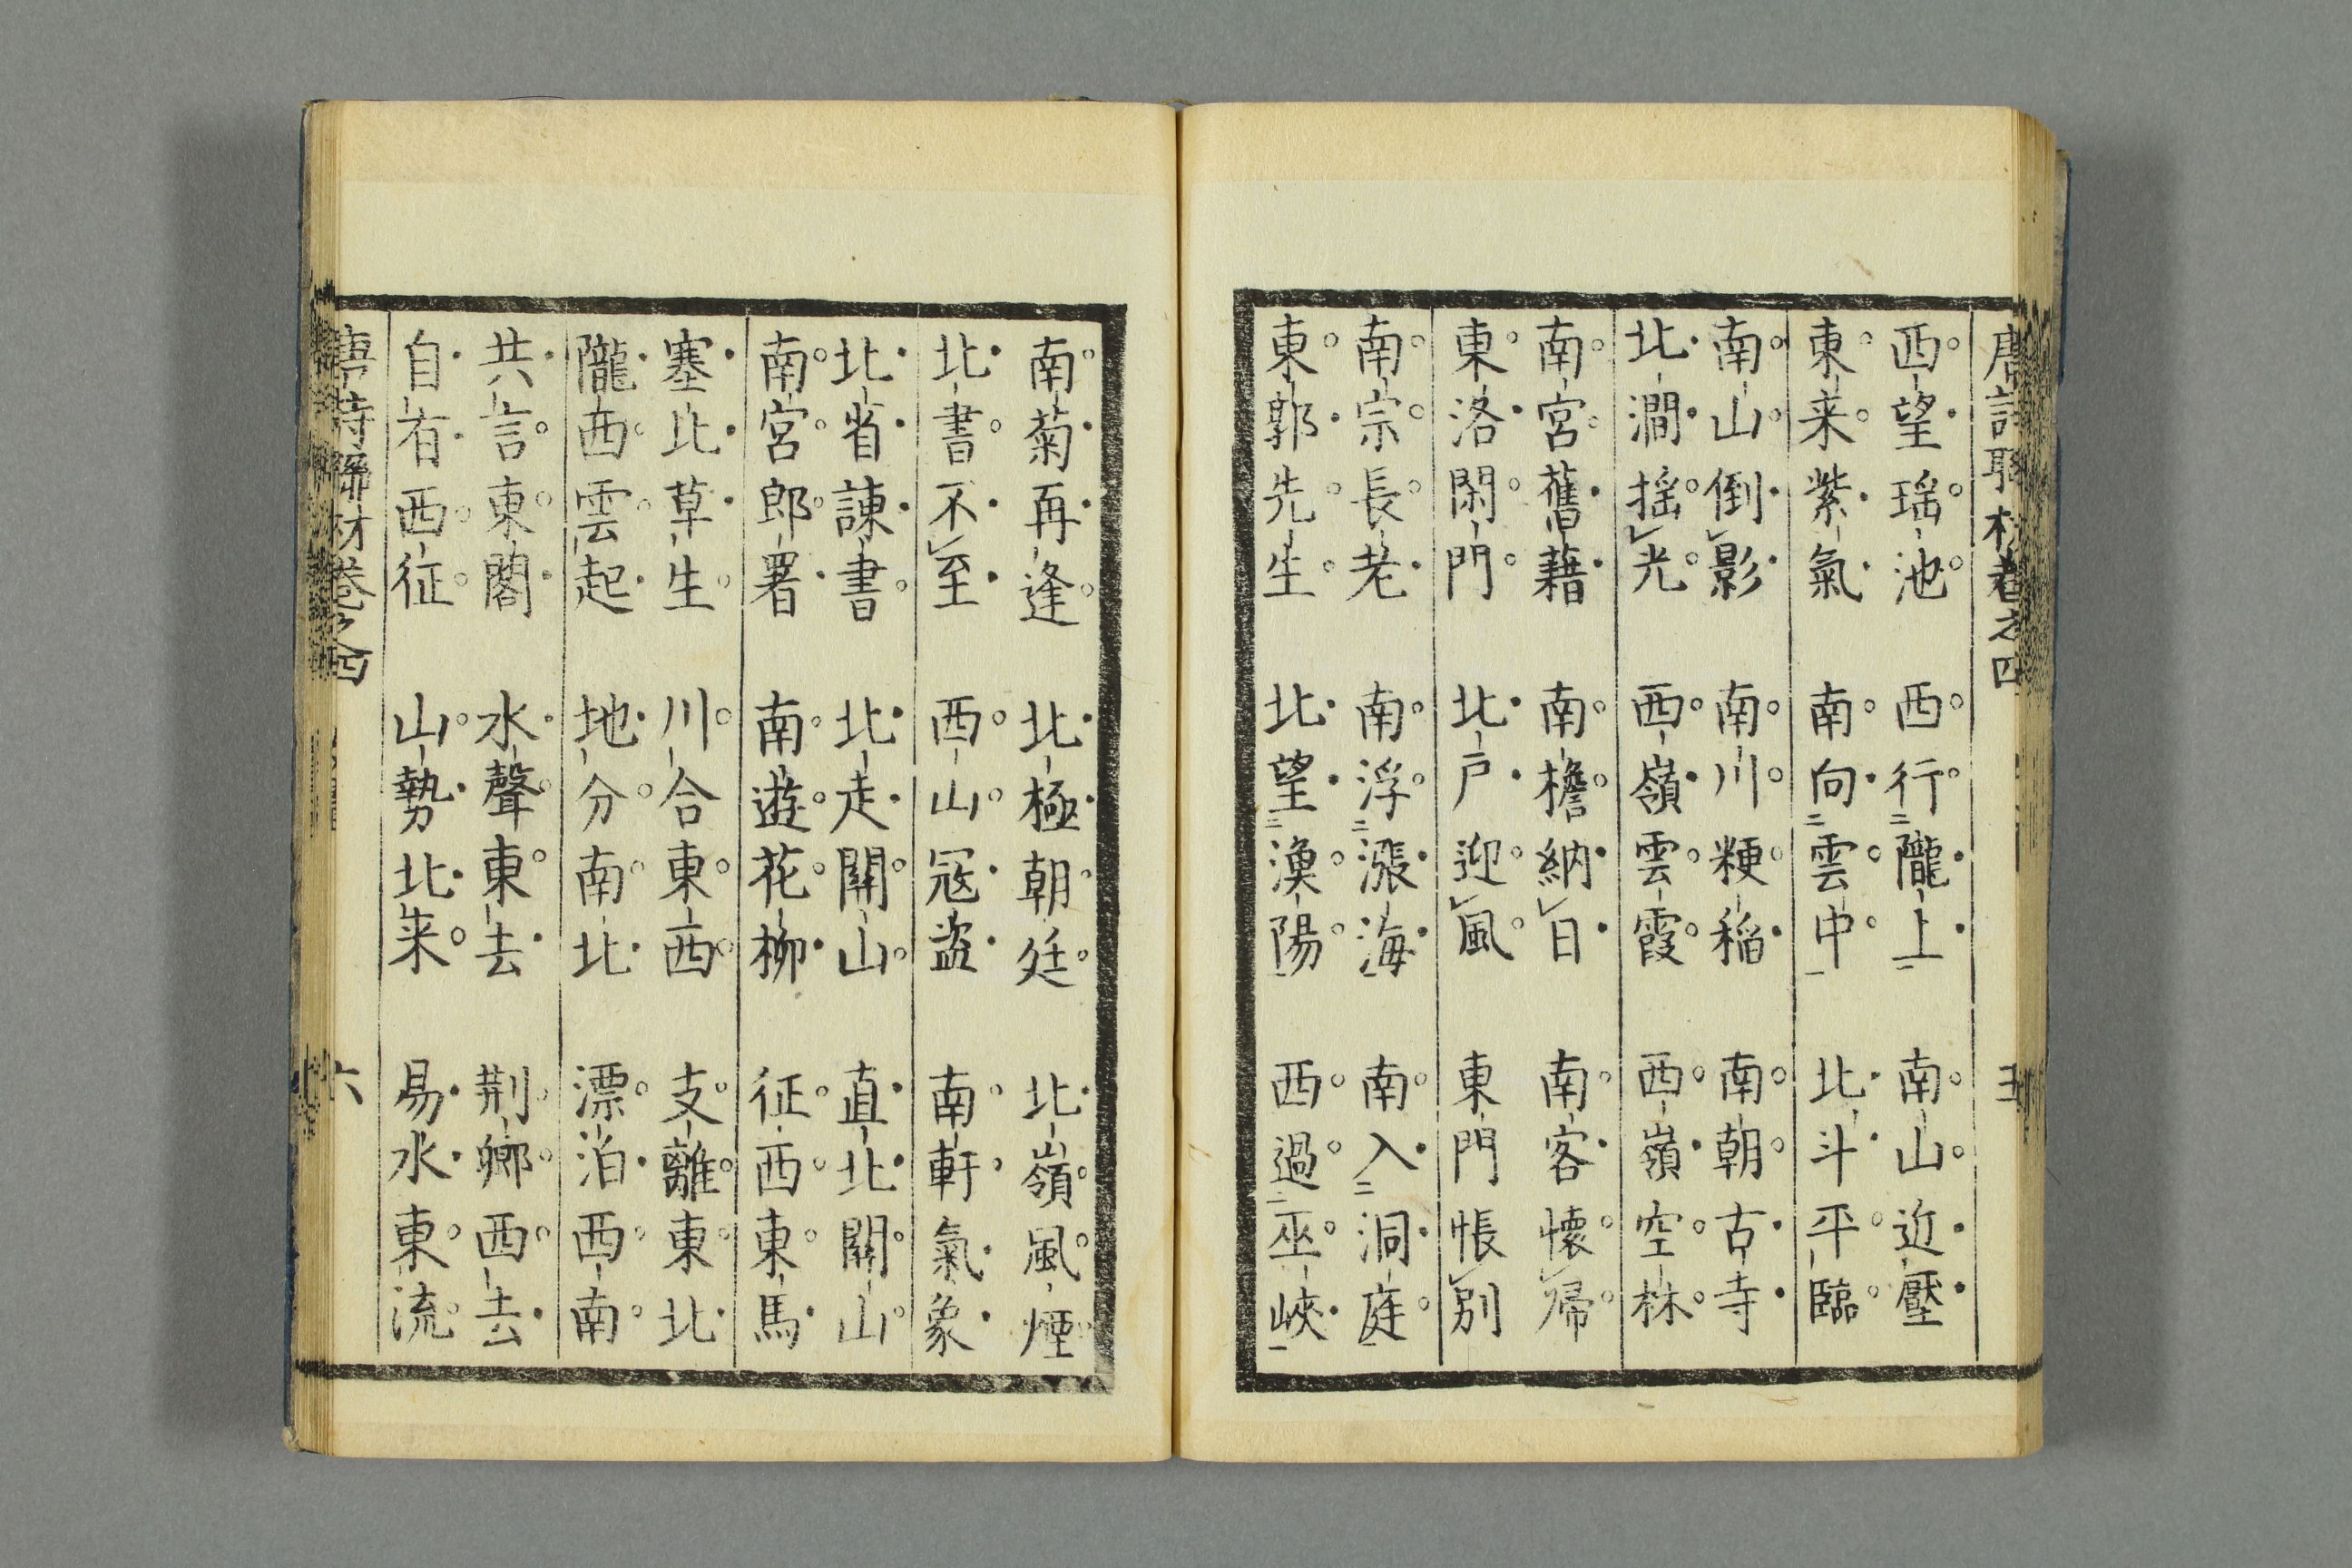 唐詩聯材卷之四
五
西望瑶池 西行隴上 南山近壓
東来紫氣 南向雲中 北斗平臨
南山倒影 南川粳稲 南朝古寺
北澗揺光 西嶺雲霞 西嶺空林
南宮舊藉 南檐納日 南客懐帰
東洛閑門 北戸迎風 東門悵別
南宗長老 南浮漲海 南入洞庭
東郭先生 北望漁陽 西過巫峽
南菊再逢 北極朝廷 北嶺風煙
北書不至 西山冦盗 南軒氣象
北省諌書 北走關山 直北關山
南宮郎署 南遊花柳 征西東馬
塞北草生 川合東西 支離東北
隴西雲起 地分南北 漂泊西南
共言東閣 水聲東去 荆卿西去
自有西征 山勢北来 易水東流
唐詩聯材卷之四
六